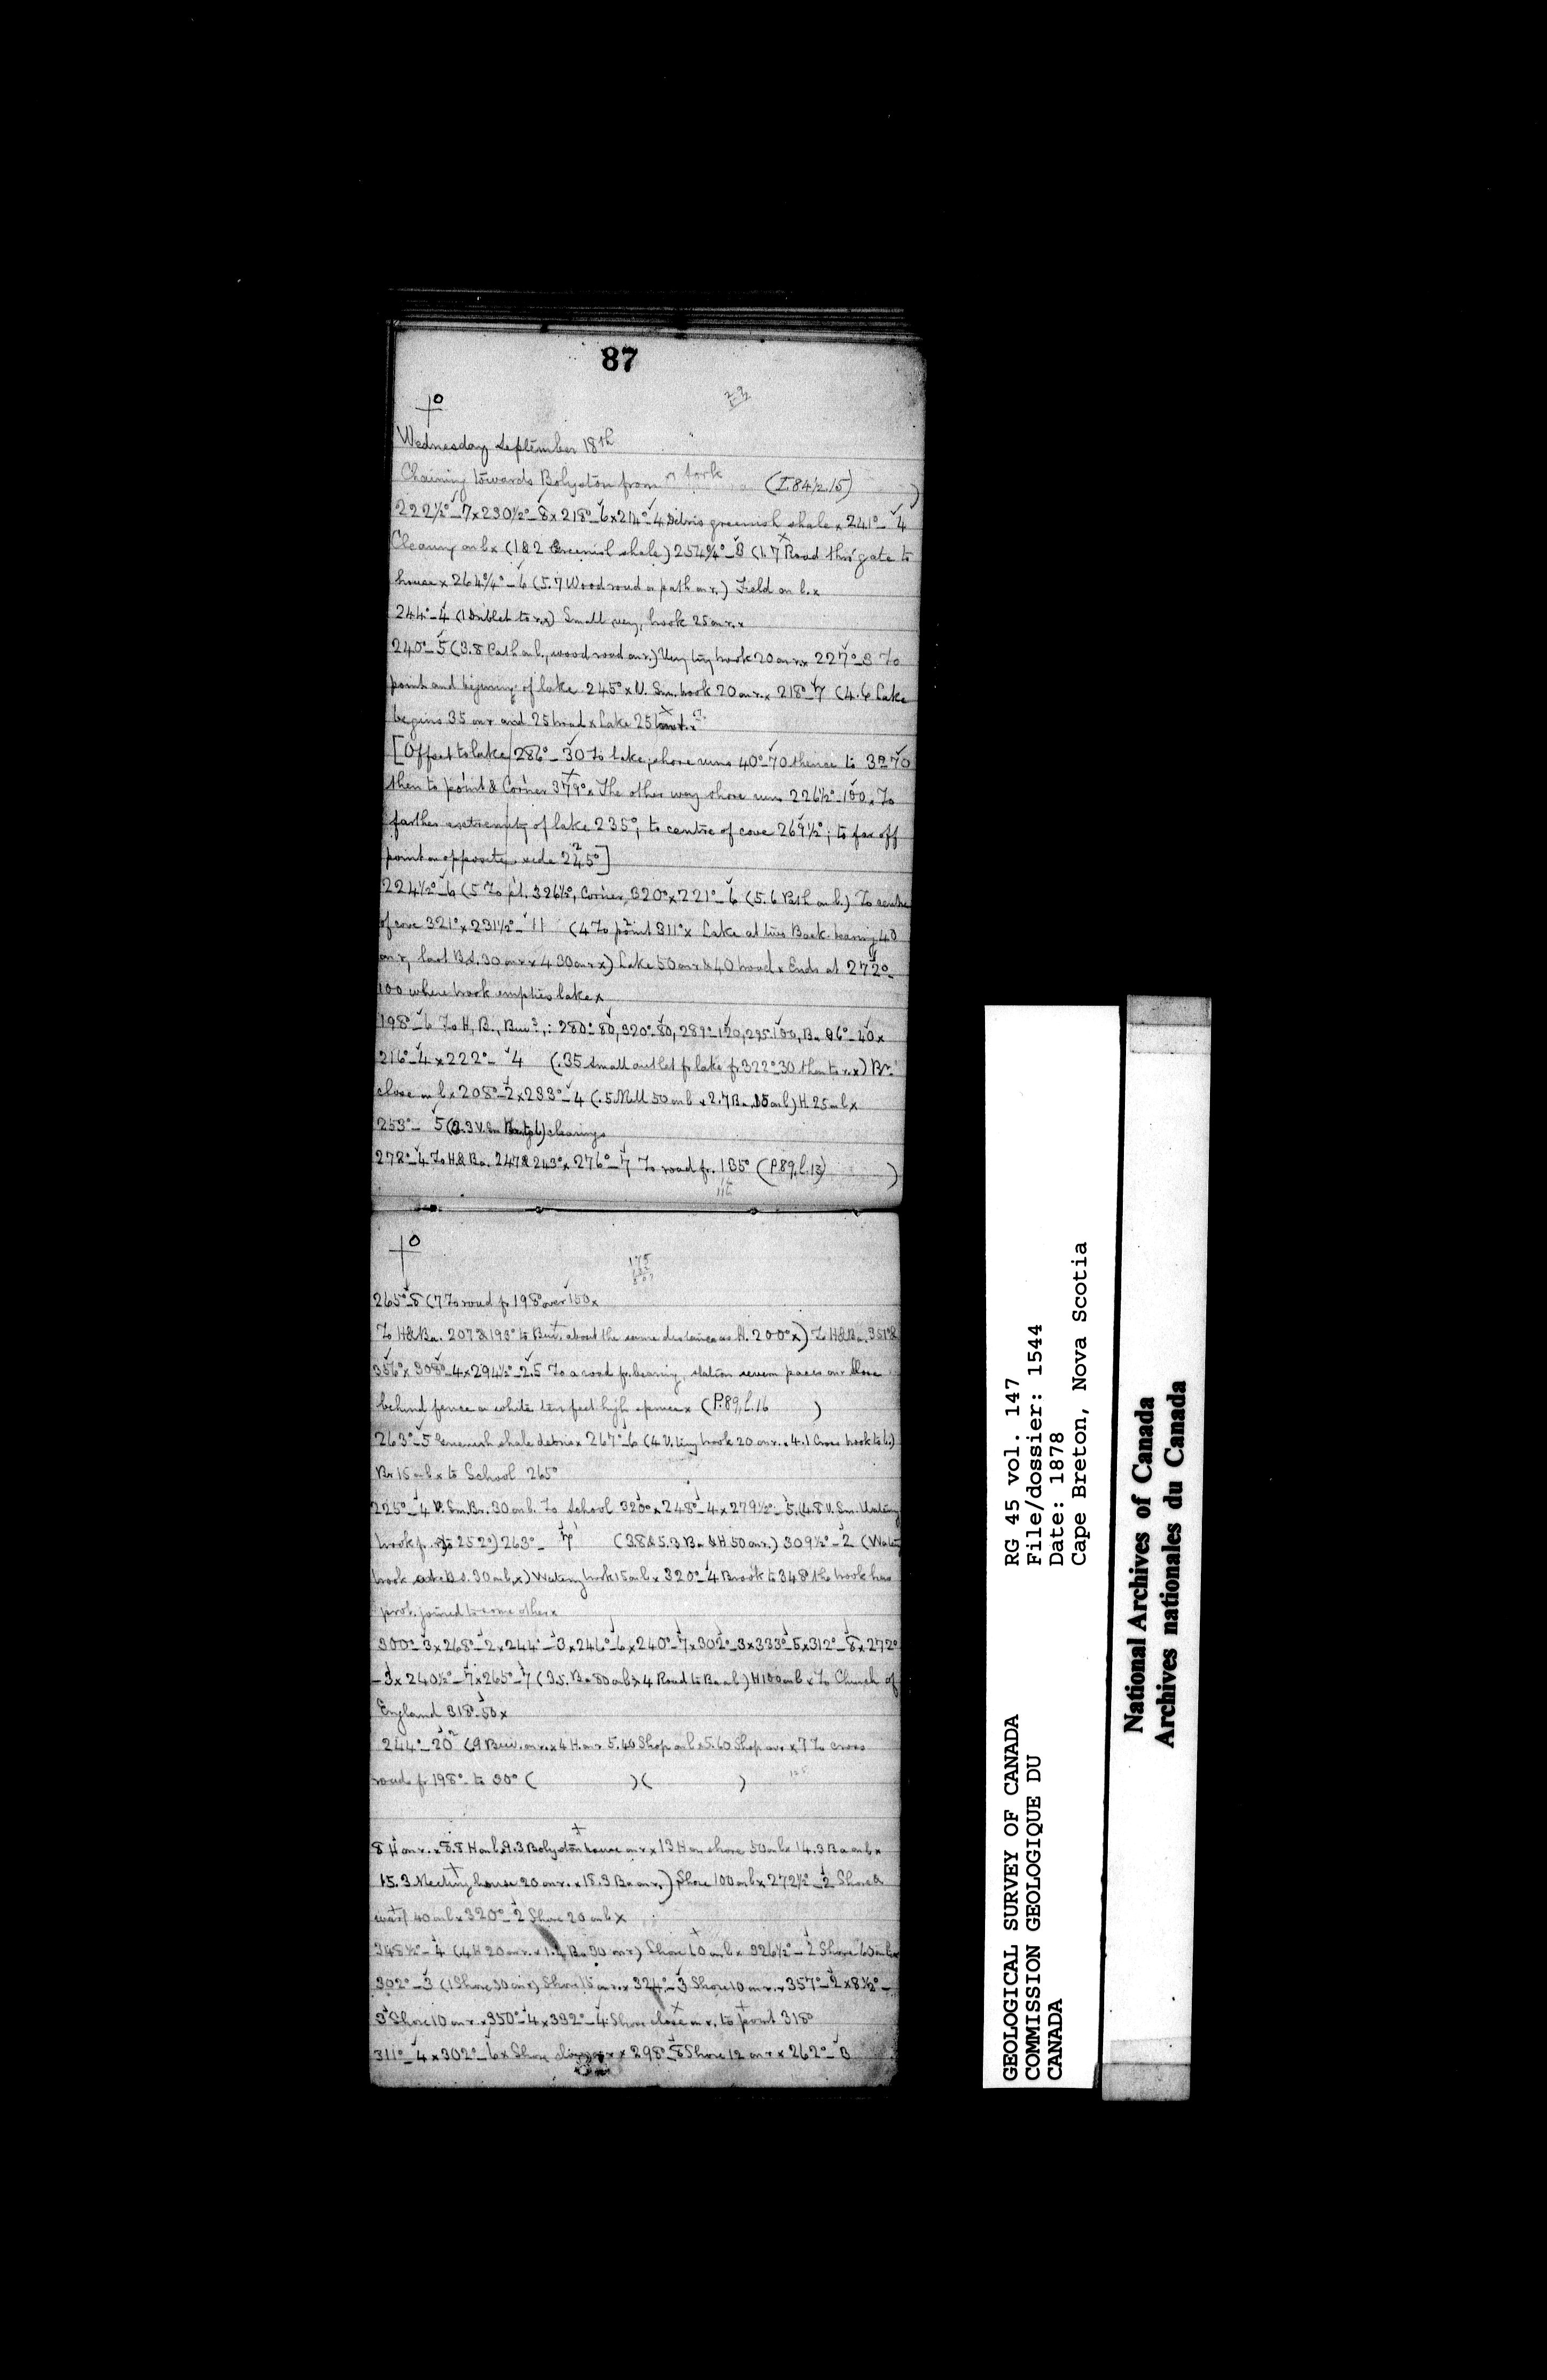 87
Wednesday September 18th
Chaining towards Bolyston from fork (I.84½.15)
222½°_7x230½°_8x218°_6x214°_4 Debris greenish shale x 241°_4
Clearing on l x (1&2 Greenish shale) 254¾°_8 (1.7 Road thro' gate to
house x 264¾°_6 (5.7 Wood road or path on r.) Field on l. x
244°_4 to r. x) Small very, brook 25 on r. x
240°_5 (3.8 Path on l., wood road on r.) Very tiny brook 20 on r. x 227°_8 To
point and beginning of lake 245° x V. Sm. brook 20 on r. x 218°_7 (4.6 Lake
begins 35 on r and 25 broad x Lake 25
[Offset to lake 286°_30 To lake, shore runs 40°_70 thence to 32°70
then to point & Corner 379° x The other way shore runs 226½°_100 x To
farther extremity of lake 235°, to centre of cove 269½°; to far off
point on opposite side 245°]
224½°_6 (5 To pt. 326½°, Corner, 320° x 221°_6 (5.6 Path on l.) To centre
of cove 321° x 231½°_11 (4 To point 311° x Lake at this Back bearing 40
on r, last B.S. 30 on r x 4 30 on r x) Lake 50 on r & 40 broad x Ends at 272°_
100 where brook empties lake x
198°_6 To H, B., : 280°_80, 320°_80, 289°_120, 295_100, Ba 86°_40 x
216°_4 x 222°_4 (.35 small outlet fr lake fr 322°30 then to r. x) Br.
close on l x 208°_2 x 233°_4 (.5 Mill 50 on l x 2.7 Ba. 15 on l) H 25 on l x
253°_5 clearings
278°_4 To H & Ba. 247 & 243° x 276°_7 To road fr. 135° (P.89, l.13)
175
265°_8 (7 To road fr 198° over 150 x
To H & Ba. 207 & 193° to about the same distance as H. 200° x) To H & Ba. 351°&
356° x 308°_4 x 294½°_2.5 To a road fr. bearing, station seven paces on r close
behind fence on white ten feet high spruce x (P.89, l.16)
263°_5 Greenish shale debris x 267°_6 (4 V. tiny brook 20 on r. x 4.1 Cross brook to l.)
Br 15 on l x to School 265°
225°_4 V. Sm. Br. 30 on l. To School 320° x 248°_4 x 279½°_5 (4.8 V. Sm. Watery
brook fr. to 252°) 263°_7 (3.8 & 5.3 Ba & H 50 on r.) 309½°_2 (Watery
brook B.S. 30 on l, x) Watery brook 15 on l x 320°_4 Brook to 348° the brook has
prob. joined to some other x
300°_3 x 268°_2 x 244°_3 x 246°_6 x 240°_7 x 302°_3 x 333°_5 x 312°_8 x 272°
_3 x 240½°_7 x 265°_7 (3.5. Ba 80 on l x 4 Road to Ba on l) H 100 on l x To Church of
England 318°_50 x
244°_20 (9 on r. x 4 H. on r 5.40 Shop on l x 5.60 Shop on r x 7 To cross
road fr 198° to 30° ( ) ( )
8 H on r. x 8.8 H on l, 9.3 Bolyston house on r x 13 H on shore 50 on l x 14.3 Ba on l x
15.3 Meeting house 20 on r. x 18.3 Ba on r.) Shore 100 on l x 272½°_2 Shore &
wharf 40 on l x 320°_2 Shore 20 on l x
345½°_4 (.4 H 20 on r. x 1.4 Ba 30 on r) Shore 10 on l x 326½°_2 Shore 60 on l x
302°_3 (1 Shore 30 on r) Shore 15 on r. x 324°_3 Shore 10 on r. x 357°_2 x 8½°_
3 Shore 10 on r. x 350°_4 x 332°_4 Shore close on r. to point 318°
311°_4 x 302°_6 x Shore x 298°_8 Shore 12 on r x 262°_8
GEOLOGICAL SURVEY OF CANADA
COMMISSION GEOLOGIQUE DU
CANADA
RG 45 vol. 147
File/dossier: 1544
Date: 1878
Cape Breton, Nova Scotia
National Archives of Canada
Archives nationales du Canada